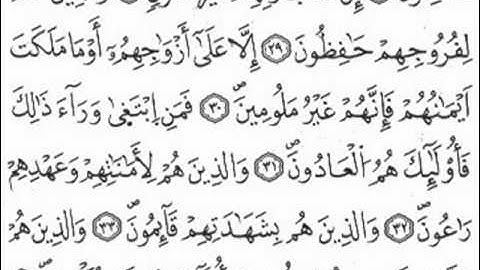 لِفُرُوجِهِمْ حَٰفِظُونَ ٢٩ إِلَّا عَلَىٰٓ أَزْوَٰجِهِمُۥٓ أَوْ مَا مَلَكَتَ
اَيْمَٰنُهُمْ فَإِنَّهُمْ غَيْرُ مَلُومِينَ ٣٠ فَمَنِ اِبْتَغَىٰ وَرَآءَ ذَٰلِكَ
فَأُوْلَٰٓئِكَ هُمُ اُلْعَادُونَ ٣١ وَالَّذِينَ هُمْ لِأَمَٰنَٰتِهِمْ وَعَهْدِهِمْ
رَٰعُونَ ٣٢ وَالَّذِينَ هُم بِشَهَٰدَتِهِمْ قَآئِمُونَ ٣٣ وَالَّذِينَ هُمْ